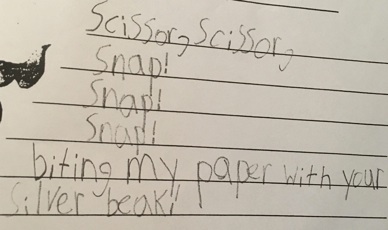 Scissor, Scissor,
Snap!
Snap!
Snap!
biting my paper with your
Silver beak!!